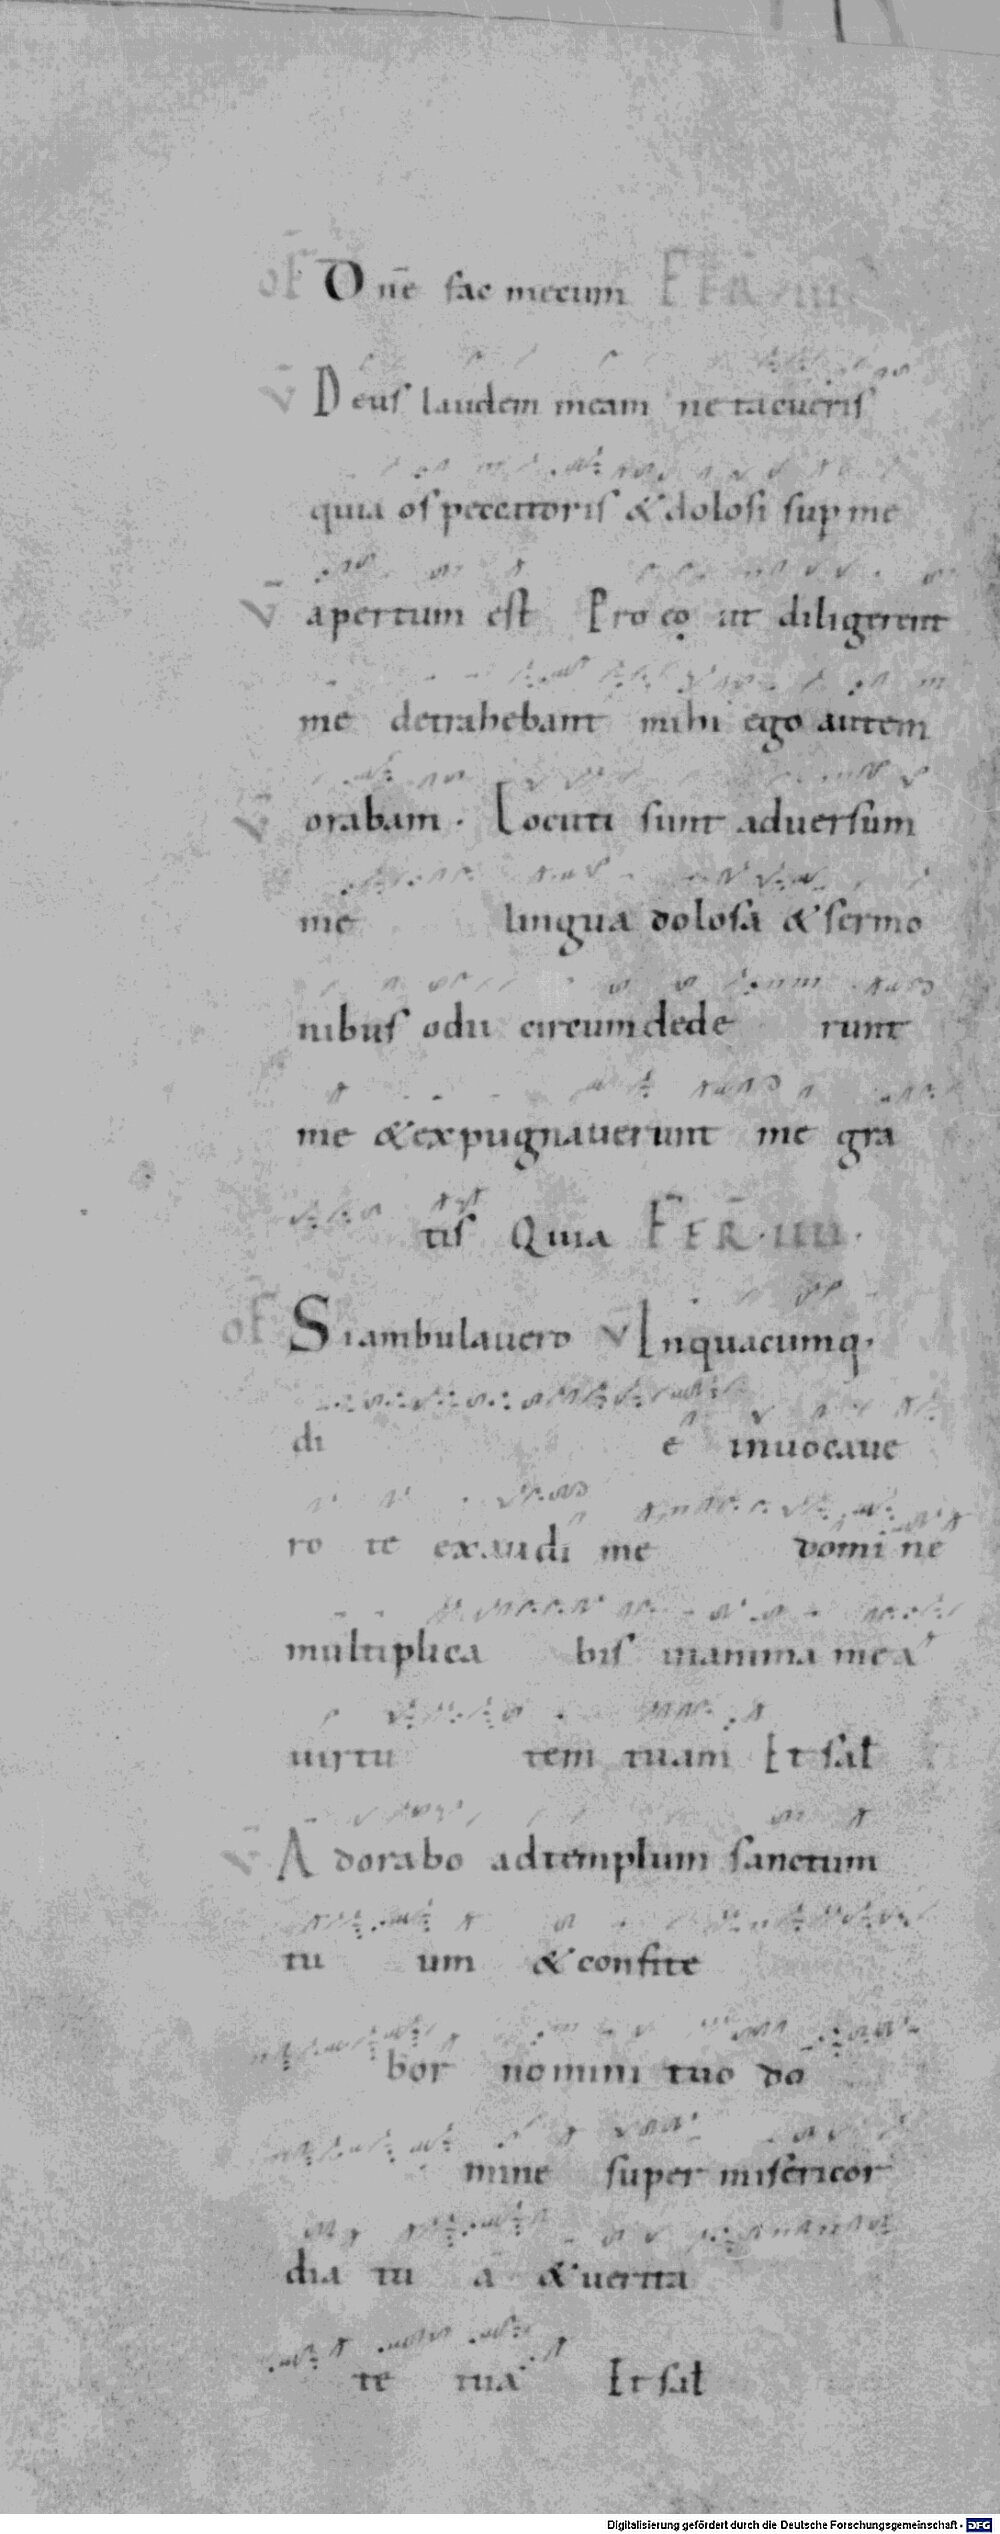 OF Dn̄e fac mecum FER III
V̄ Deus laudem meam ne tacueris
quia os peccatoris & dolosi sup me
V̄ apertum est Pro eo ut diligerent
me detrahebant mihi ego autem
V̄ orabam. Locuti sunt adversum
me lingua dolosa & sermo
nibus odii circumdede runt
me & expugnaverunt me gra
tis Quia FER. IIII.
OF Si ambulavero V̄ In quacumq.
di e invocave
ro te exaudi me domine
multiplica bis in anima mea
virtu tem tuam Et sal
V̄ Adorabo ad templum sanctum
tu um & confite
bor nomini tuo do
mine super misericor
dia tu a & verita
te tua Et sal
Digitalisierung gefördert durch die Deutsche Forschungsgemeinschaft - DFG